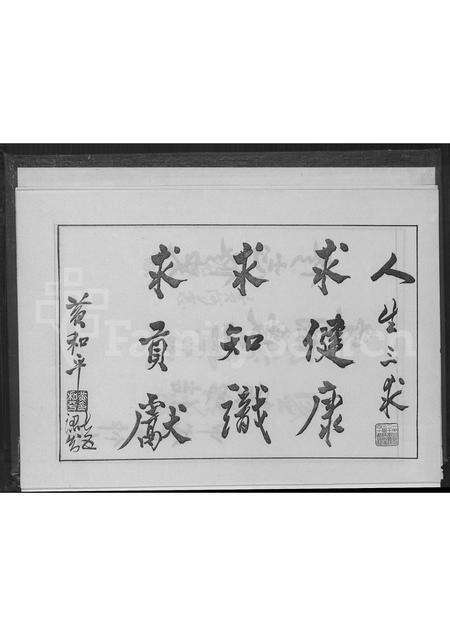 人生三求
求健康
求知識
求貢獻
黃和平
FamilySearch